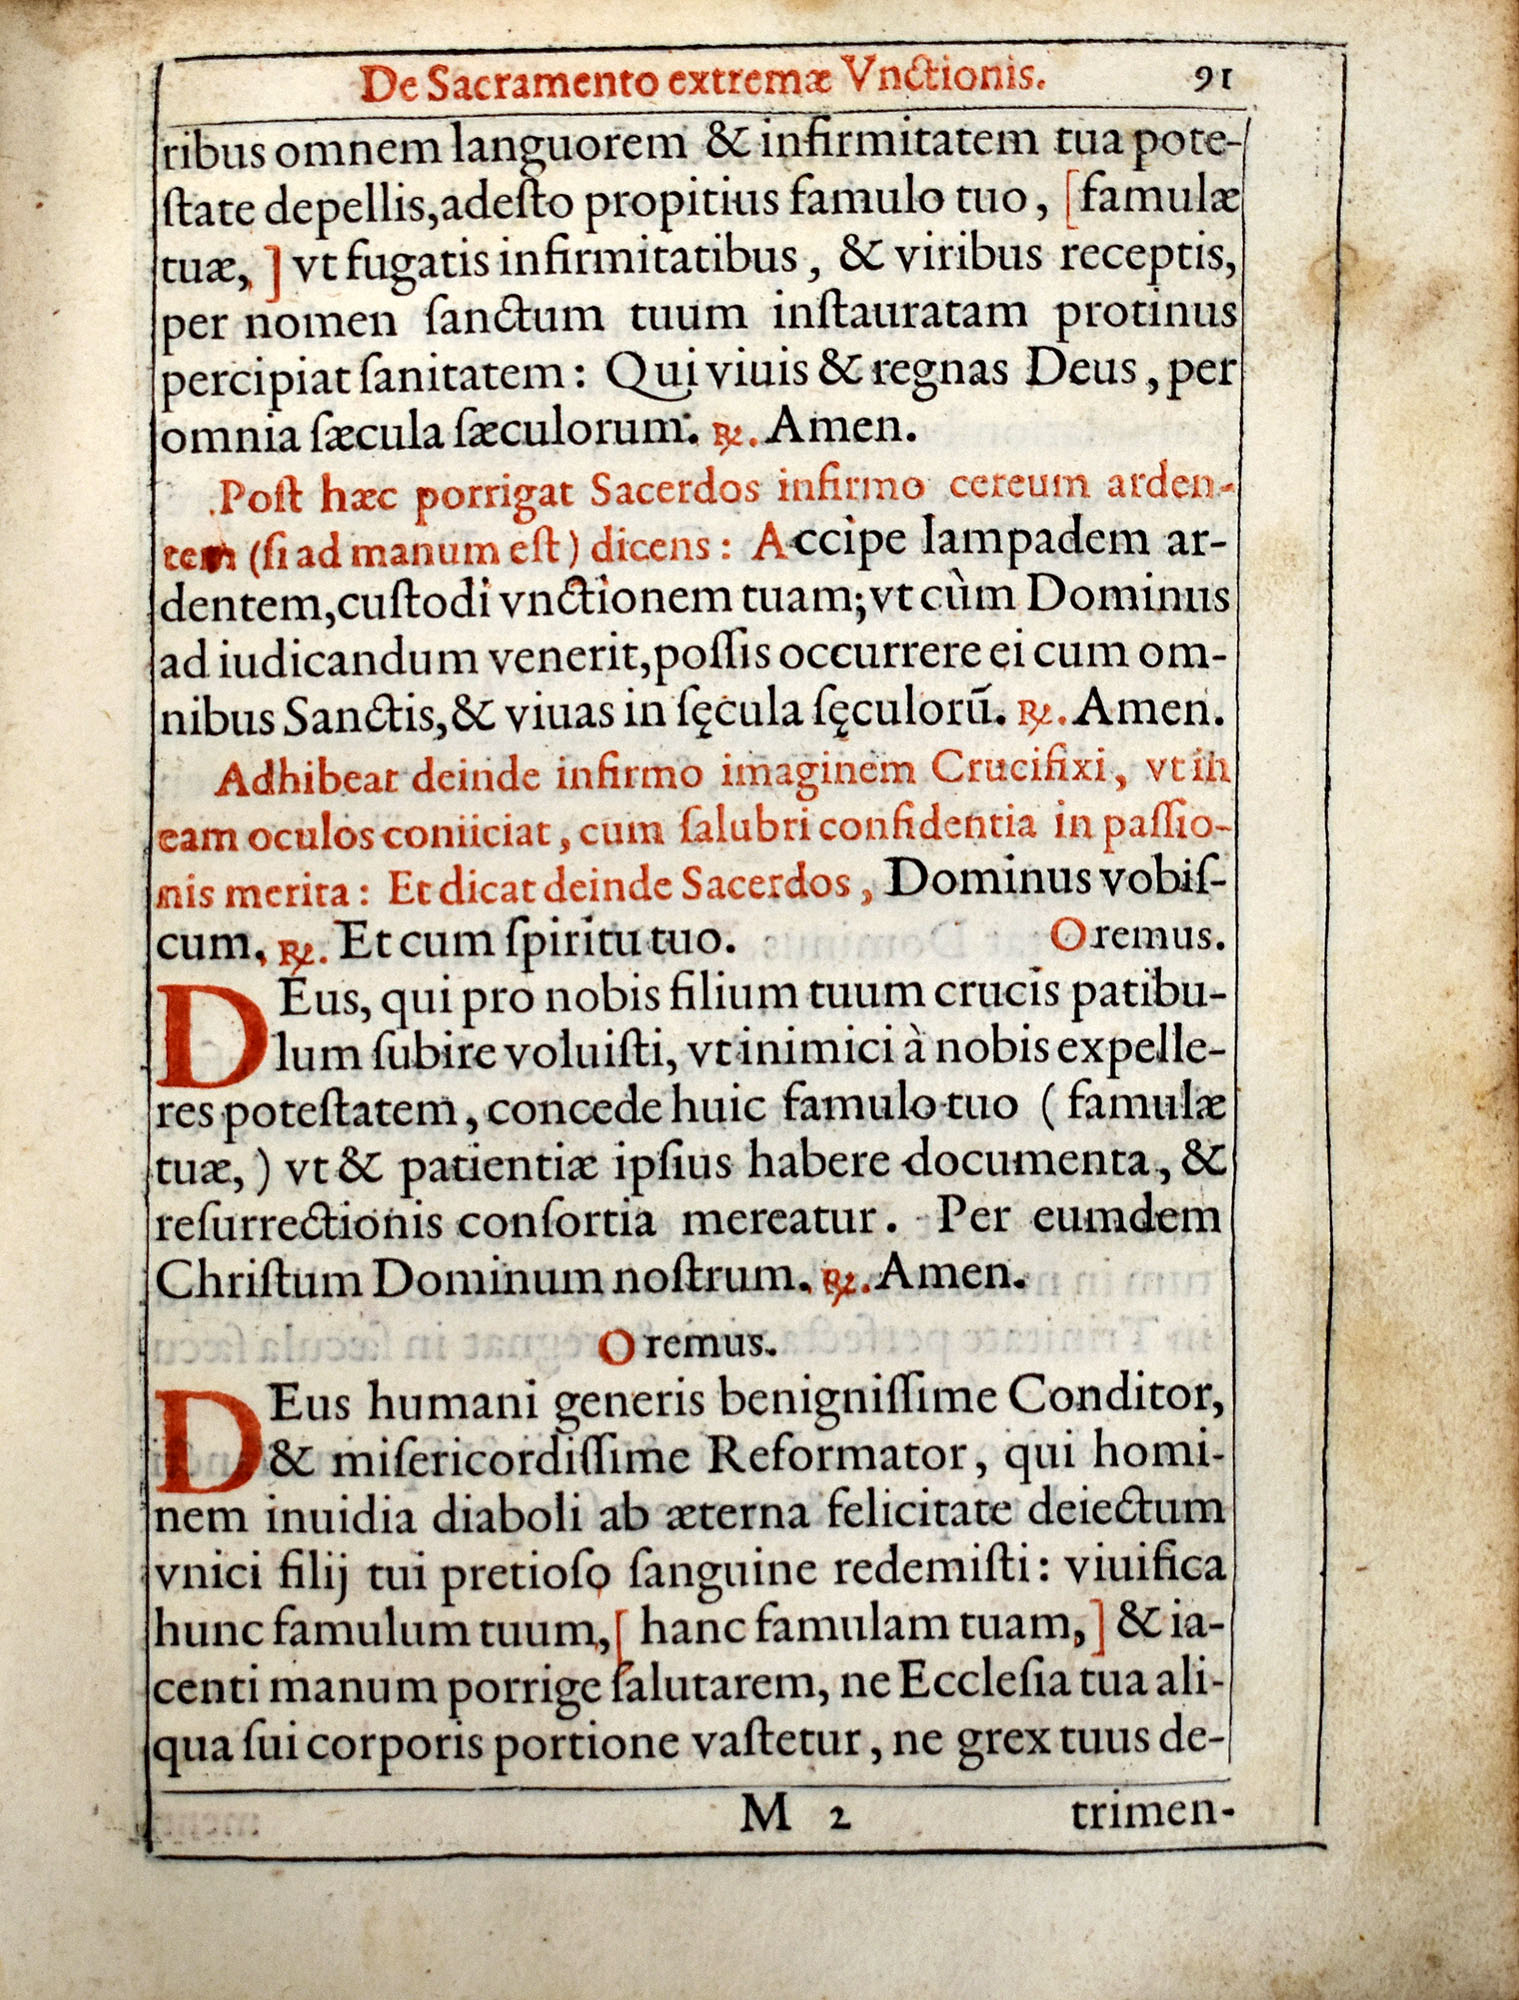 De Sacramento extremæ Vnctionis. 91
ribus omnem languorem & infirmitatem tua pote-
ſtate depellis, adeſto propitius famulo tuo, [famulæ
tuæ,] vt fugatis infirmitatibus, & viribus receptis,
per nomen ſanctum tuum inſtauratam protinus
percipiat ſanitatem: Qui viuis & regnas Deus, per
omnia ſæcula ſæculorum. ℟. Amen.
Poſt hæc porrigat Sacerdos infirmo cereum arden-
tem (ſi ad manum eſt) dicens: Accipe lampadem ar-
dentem, cuſtodi vnctionem tuam; vt cùm Dominus
ad iudicandum venerit, poſſis occurrere ei cum om-
nibus Sanctis, & viuas in ſęcula ſęculorũ. ℟. Amen.
Adhibeat deinde infirmo imaginem Crucifixi, vt in
eam oculos coniiciat, cum ſalubri confidentia in paſſio-
nis merita: Et dicat deinde Sacerdos, Dominus vobiſ-
cum, ℟. Et cum ſpiritu tuo. Oremus.
DEus, qui pro nobis filium tuum crucis patibu-
lum ſubire voluiſti, vt inimici à nobis expelle-
res poteſtatem, concede huic famulo tuo (famulæ
tuæ,) vt & patientiæ ipſius habere documenta, &
reſurrectionis conſortia mereatur. Per eumdem
Chriſtum Dominum noſtrum. ℟. Amen.
Oremus.
DEus humani generis benigniſſime Conditor,
& miſericordiſſime Reformator, qui homi-
nem inuidia diaboli ab æterna felicitate deiectum
vnici filij tui pretioſo ſanguine redemiſti: viuifica
hunc famulum tuum, [hanc famulam tuam,] & ia-
centi manum porrige ſalutarem, ne Eccleſia tua ali-
qua ſui corporis portione vaſtetur, ne grex tuus de-
M 2 trimen-